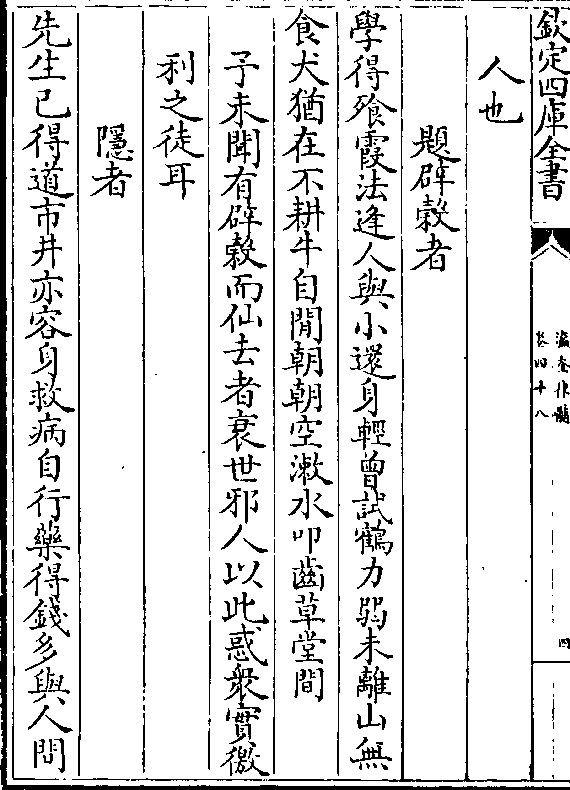 欽定四庫全書
瀛奎律髓
卷四十八
四
人也
題辟榖者
學得飱霞法逢人與小還身輕曾試鶴力弱未離山無
食犬猶在不耕牛自閒朝朝空漱水叩齒草堂間
予未聞有辟榖而仙去者衰世邪人以此惑衆實徼
利之徒耳
隱者
先生已得道市井亦容身救病自行藥得錢多與人問